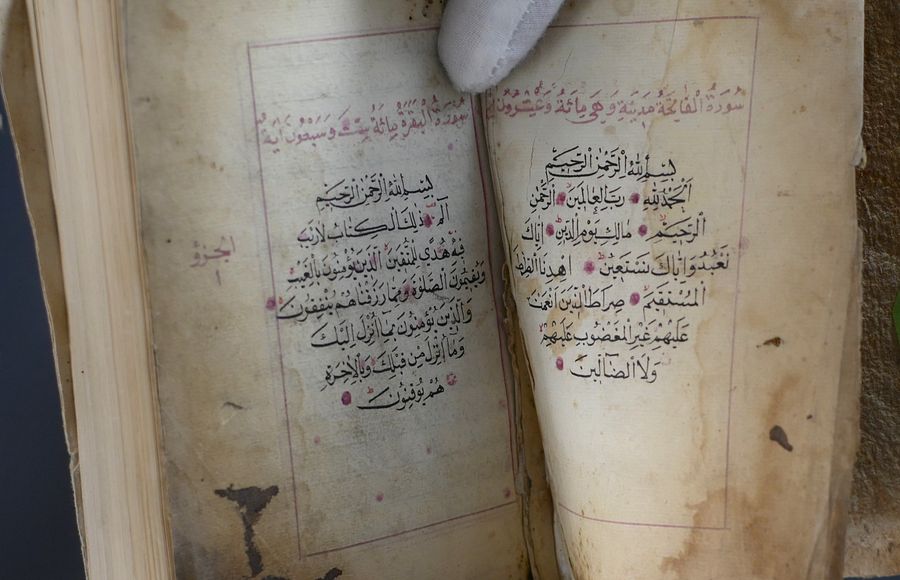 سورة الفاتحة مدنية وهي مائة وعشرون
بسم الله الرحمن الرحيم
الحمد لله رب العالمين الرحمن
الرحيم مالك يوم الدين إياك
نعبد وإياك نستعين اهدنا الصراط
المستقيم صراط الذين أنعمت
عليهم غير المغضوب عليهم
ولا الضالين
سورة البقرة مائة ست وسبعون آية
بسم الله الرحمن الرحيم
الم ذلك الكتاب لا ريب
فيه هدى للمتقين الذين يؤمنون بالغيب
ويقيمون الصلوة ومما رزقناهم ينفقون
والذين يؤمنون بما أنزل إليك
وما أنزل من قبلك وبالآخرة
هم يوقنون
الجزؤ
١